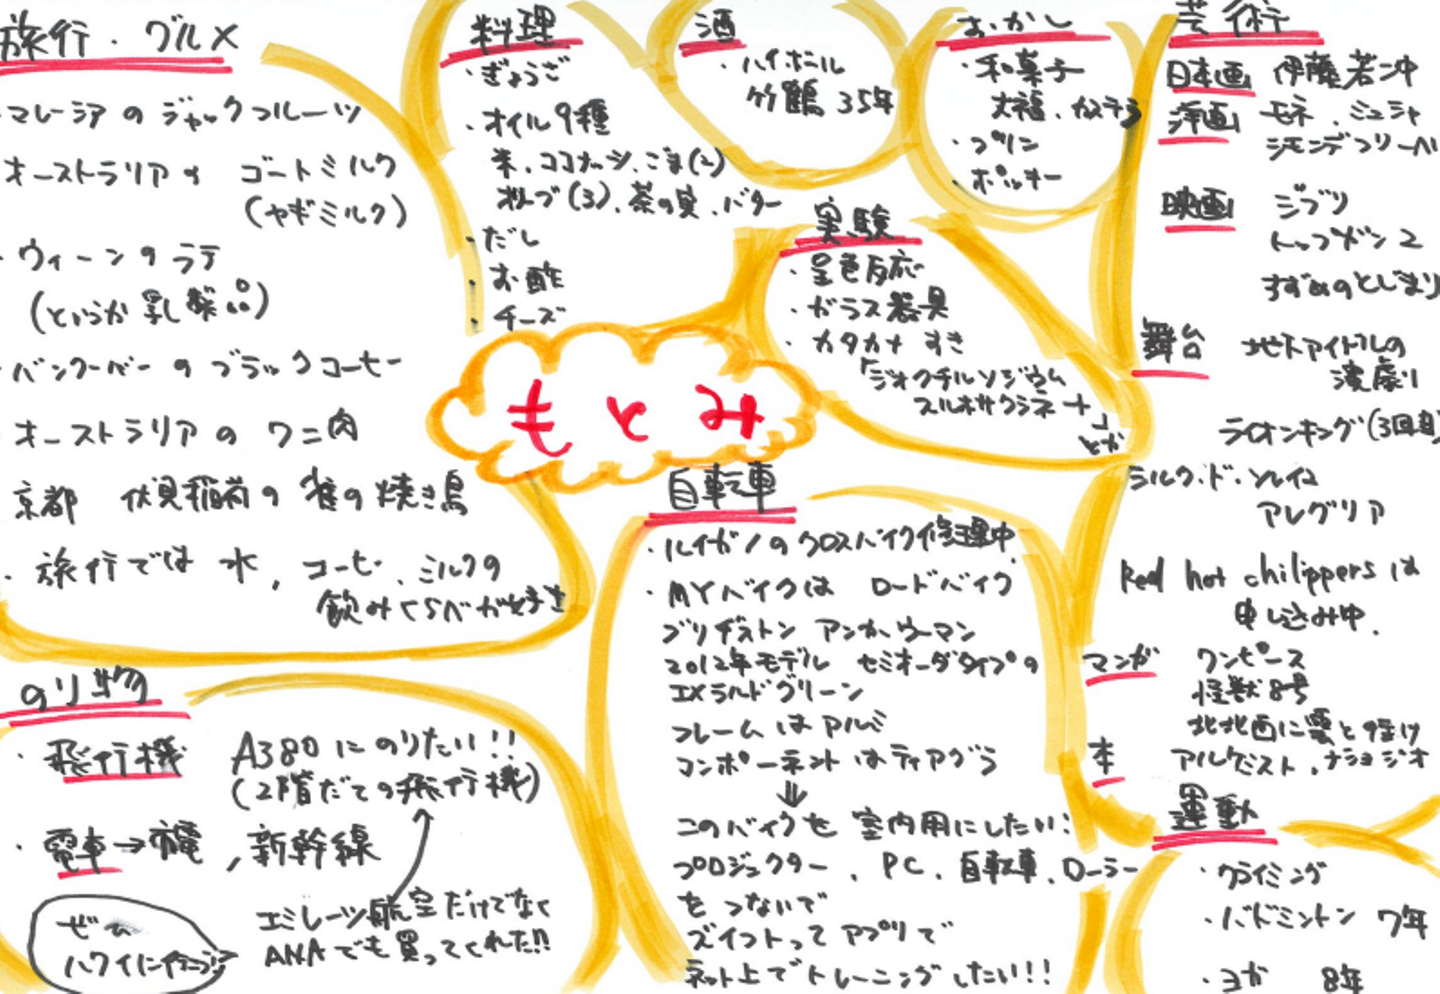 旅行・グルメ
・マレーシアのジャックフルーツ
オーストラリアの ゴートミルク
(ヤギミルク)
・ウィーンのラテ
(というか乳製品)
・バンクーバーのブラックコーヒー
・オーストラリアのワニ肉
京都 伏見稲荷の雀の焼き鳥
・旅行では水、コーヒー、ミルクの
飲みくらべが好き
料理
・ぎょうざ
・オイル9種
米、ココナッツ、ごま(2)
オリーブ(3)、茶の実、バター
・だし
・お酢
・チーズ
酒
・ハイボール
竹鶴 35年
おかし
・和菓子
大福、カステラ
・プリン
・ポッキー
芸術
日本画 伊藤若冲
洋画 モネ、ミュシャ
映画 ジブリ
トップガン2
すずめのとじまり
舞台 地下アイドルの
演劇
ライオンキング(3回目)
シルク・ド・ソレイユ
アレグリア
Red hot chilippersは
申し込み中.
マンガ ワンピース
怪獣8号
北北西に雲と往け
本 アルケミスト、ナショジオ
実験
・呈色反応
・ガラス器具
・カタカナ すき
「ジオクチルソジウム
スルホサクシネート」
とか
もとみ
自転車
・ルイガノのクロスバイク修理中
・MYバイクは ロードバイク
ブリヂストン アンカーウーマン
2012年モデル セミオーダータイプの
エメラルドグリーン
フレームはアルミ
コンポーネントはティアグラ
⇓
このバイクを室内用にしたい!
プロジェクター、PC、自転車、ローラー
をつないで
ズイフトってアプリで
ネット上でトレーニングしたい!!
のり物
・飛行機 A380にのりたい!!
(2階だての飛行機)
・電車→市電、新幹線
エミレーツ航空だけでなく
ANAでも買ってくれた!!
ぜひ
ハワイに行こう!
運動
・クライミング
・バドミントン 7年
・ヨガ 8年